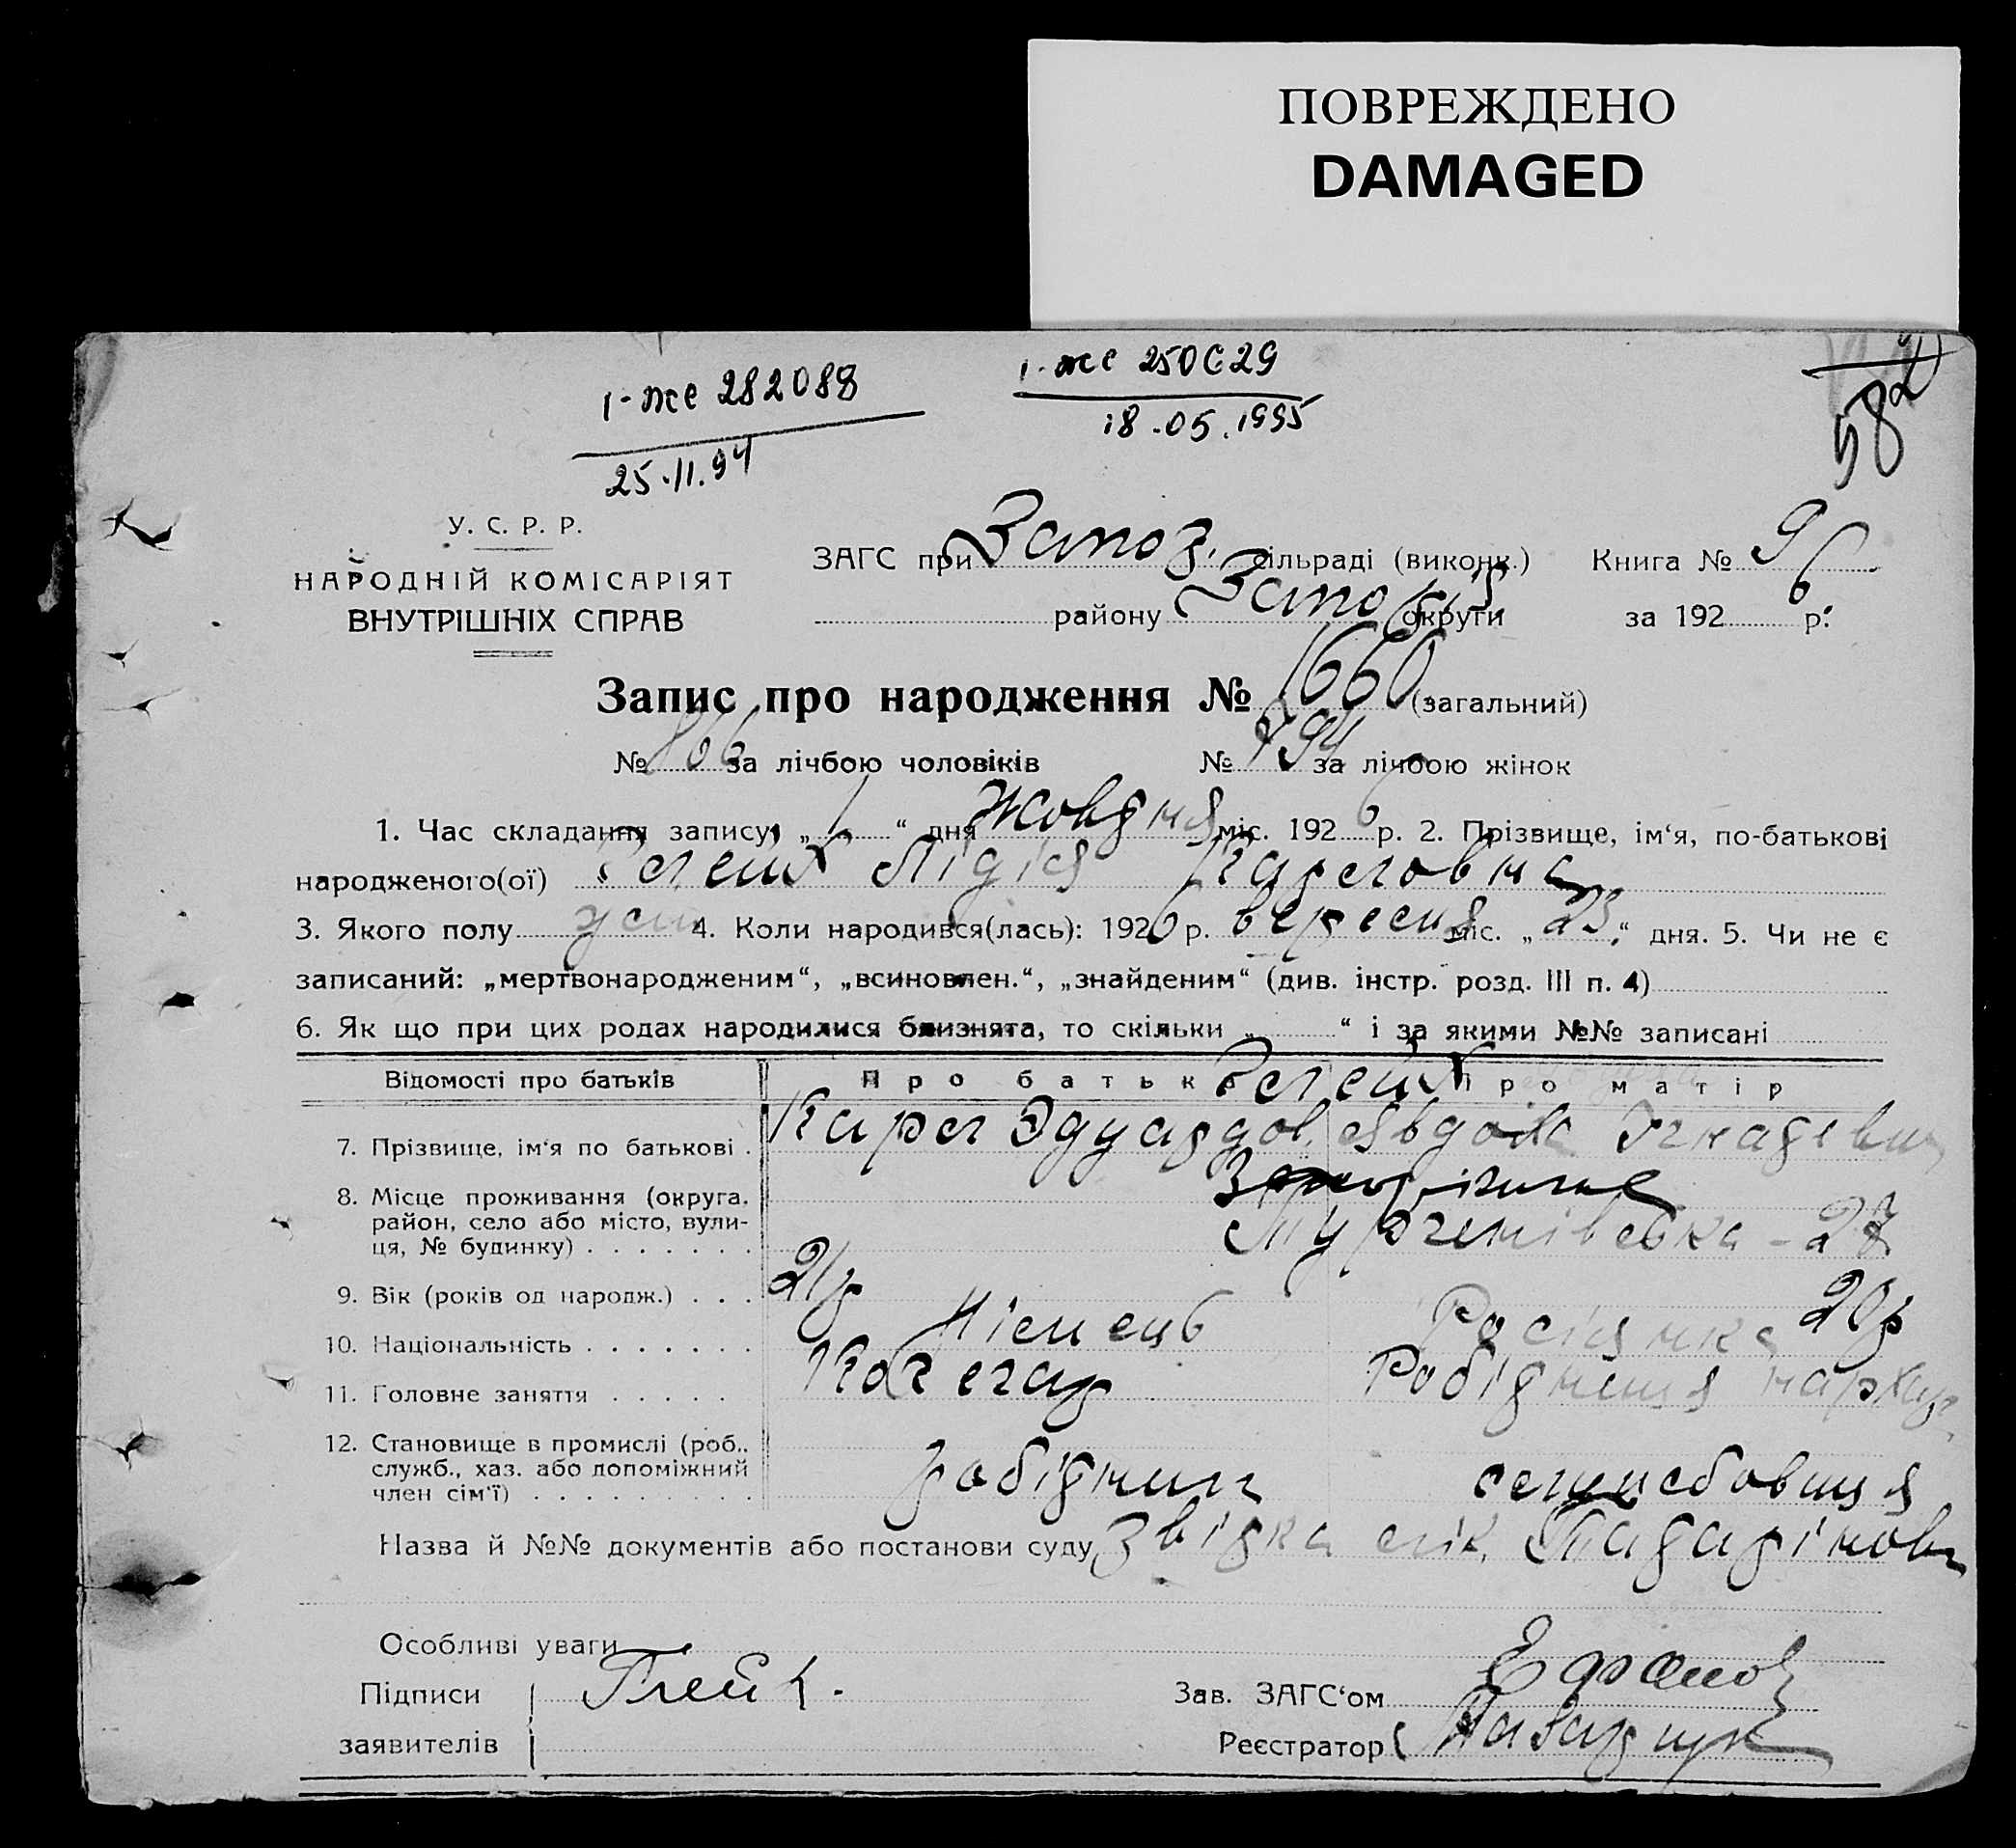 ПОВРЕЖДЕНО
DAMAGED
1-же 282088
25.11.94
1-же 250629
18.05.1995
582
У. С. Р. Р.
НАРОДНІЙ КОМІСАРІЯТ
ВНУТРІШНІХ СПРАВ
ЗАГС при Запоз. сільраді (виконк.) Книга № 9
району Запоріз. округи за 1926 р.
Запис про народження № 1660 (загальний)
№ 866 за лічбою чоловіків № 794 за лічбою жінок
1. Час складання запису „1“ дня Жовдня міс. 1926 р. 2. Прізвище, ім‘я, по-батькові
народженого(ої) Глейх Лідія Карловна
3. Якого полу жен 4. Коли народився(лась): 1926 р. вересня міс. „23“ дня. 5. Чи не є
записаний: „мертвонародженим“, „всиновлен.“, „знайденим“ (див. інстр. розд. III п. 4)
6. Як що при цих родах народилися близнята, то скільки „ “ і за якими №№ записані
Відомості про батьків Про батька Про матір
Глейх
7. Прізвище, ім‘я по батькові . Карл Эдуардов. Явдоха
8. Місце проживання (округа, район, село або місто, вули-ця, № будинку) . . . . . . . Запоріжжє
Тургенівська - 27
9. Вік (років од народж.) . . . 21р 20р
10. Національність . . . . . . . Німець Росіянка
11. Головне заняття . . . . . Кочегар Робідниця нархар.
12. Становище в промислі (роб., служб., хаз. або допоміжний член сім‘ї) . . . . . . . . . робідник служебовиця
Назва й №№ документів або постанови суду Звідка лік.
Особливі уваги
Підписи Глейх.
заявителів
Зав. ЗАГС‘ом
Реєстратор